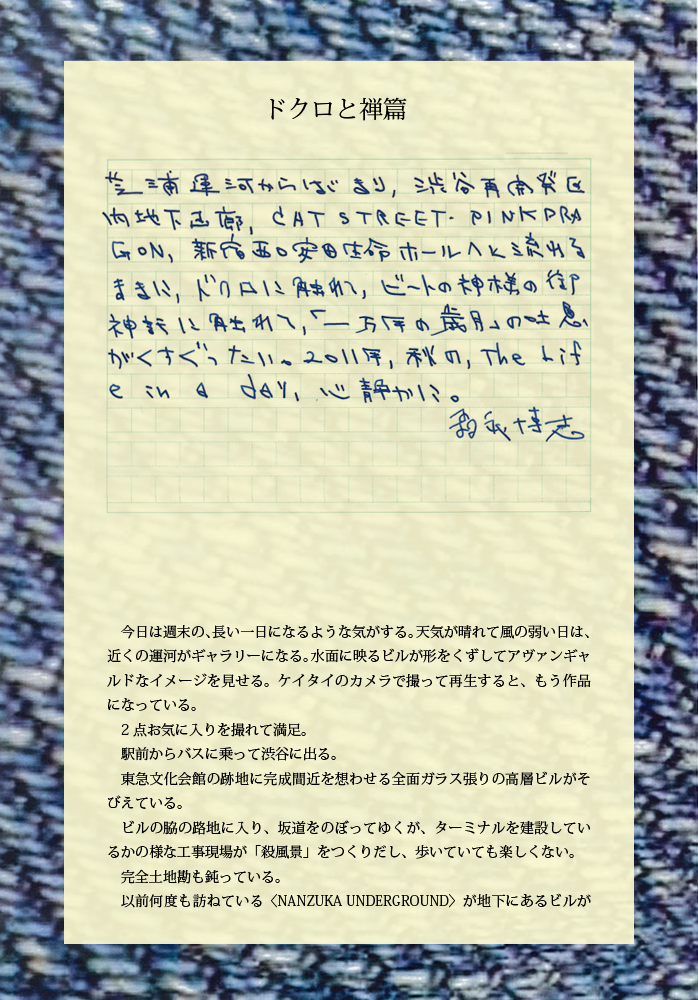 ドクロと禅篇
芝浦運河からはじまり，渋谷再開発区
内地下画廊，CAT STREET・PINK DRA
GON，新宿西口安田生命ホールへと流れる
ままに，ドクロに触れて，ビートの神様の御
神託に触れて，「一万年の歳月」の吐息
がくすぐったい。2011年，秋の，The Lif
e in a day，心静かに。
　今日は週末の、長い一日になるような気がする。天気が晴れて風の弱い日は、
近くの運河がギャラリーになる。水面に映るビルが形をくずしてアヴァンギャ
ルドなイメージを見せる。ケイタイのカメラで撮って再生すると、もう作品
になっている。
　2点お気に入りを撮れて満足。
　駅前からバスに乗って渋谷に出る。
　東急文化会館の跡地に完成間近を想わせる全面ガラス張りの高層ビルがそ
びえている。
　ビルの脇の路地に入り、坂道をのぼってゆくが、ターミナルを建設してい
るかの様な工事現場が「殺風景」をつくりだし、歩いていても楽しくない。
　完全土地勘も鈍っている。
　以前何度も訪ねている〈NANZUKA UNDERGROUND〉が地下にあるビルが